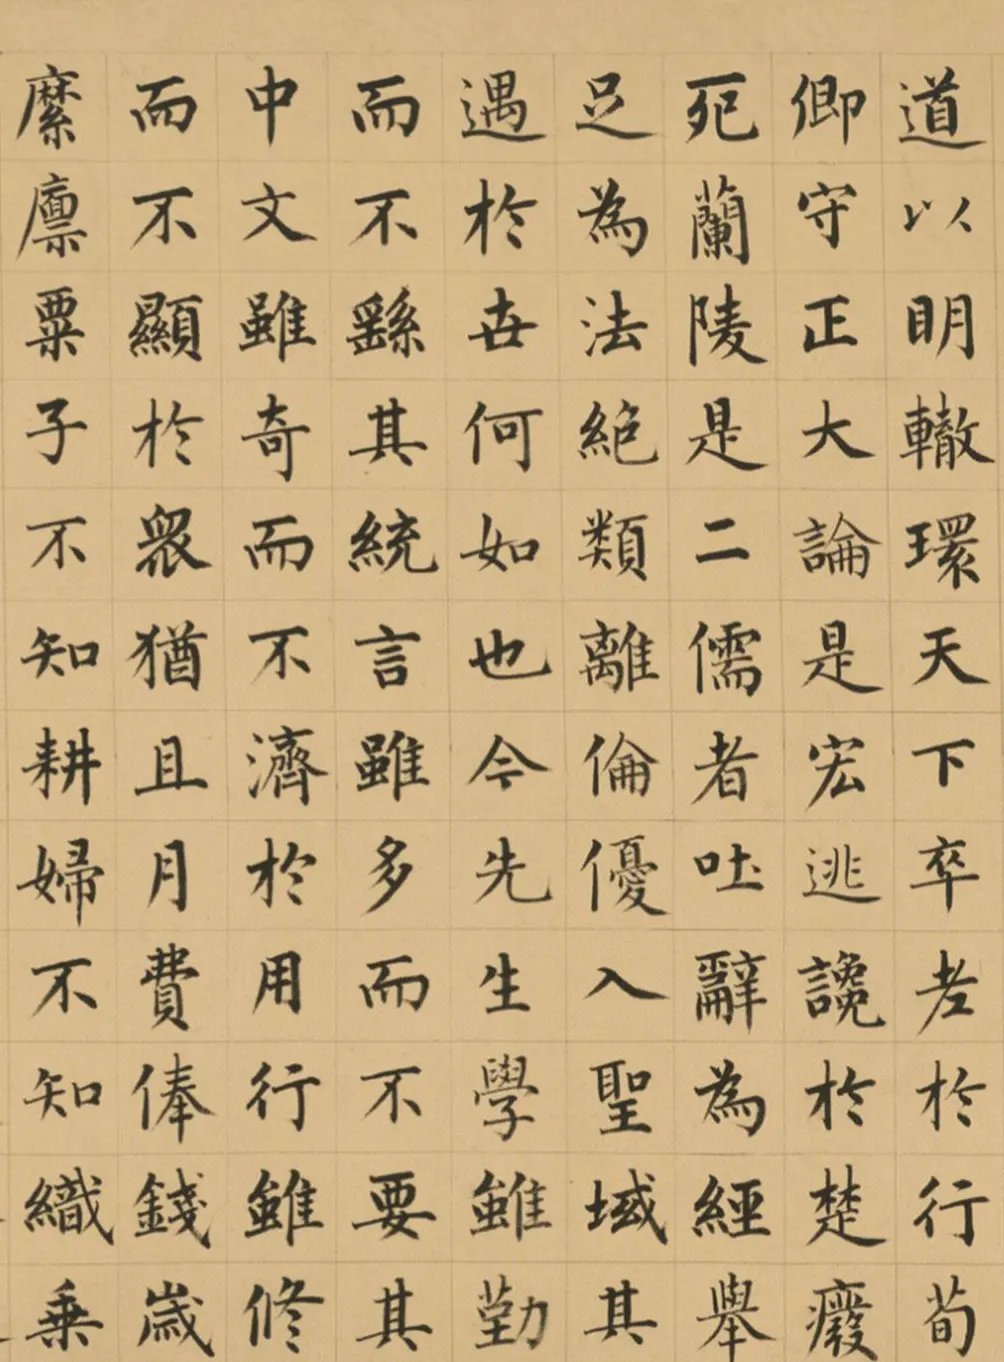 道以明轍環天下卒老於行荀
卿守正大論是宏逃讒於楚癈
死蘭陵是二儒者吐辭為經舉
足為法絕類離倫優入聖域其
遇於世何如也今先生學雖勤
而不繇其統言雖多而不要其
中文雖奇而不濟於用行雖修
而不顯於衆猶且月費俸錢歲
縻廩粟子不知耕婦不知織乘